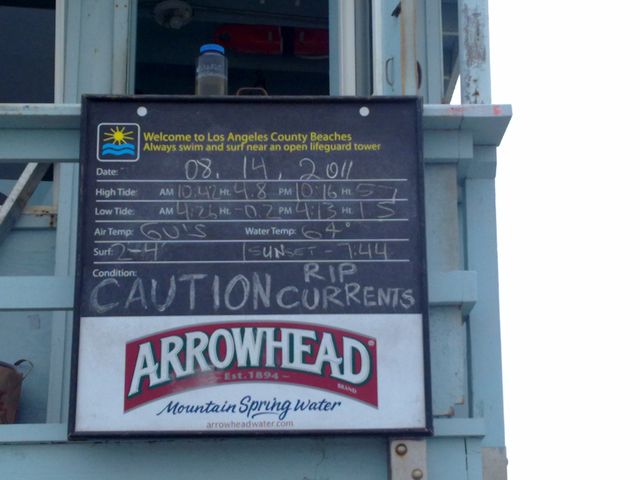 Welcome to Los Angeles County Beaches
Always swim and surf near an open lifeguard tower
Date: 08. 14, 2011
High Tide: AM 10:42 Ht. 4.8 PM 10:16 Ht. 5.7
Low Tide: AM 4:26 Ht. -0.2 PM 4:13 Ht. 1.5
Air Temp: 60'S Water Temp: 64°
Surf: 2-4' SUNSET - 7:44
Condition: RIP
CAUTION CURRENTS
ARROWHEAD®
Est. 1894
BRAND
Mountain Spring Water
arrowheadwater.com